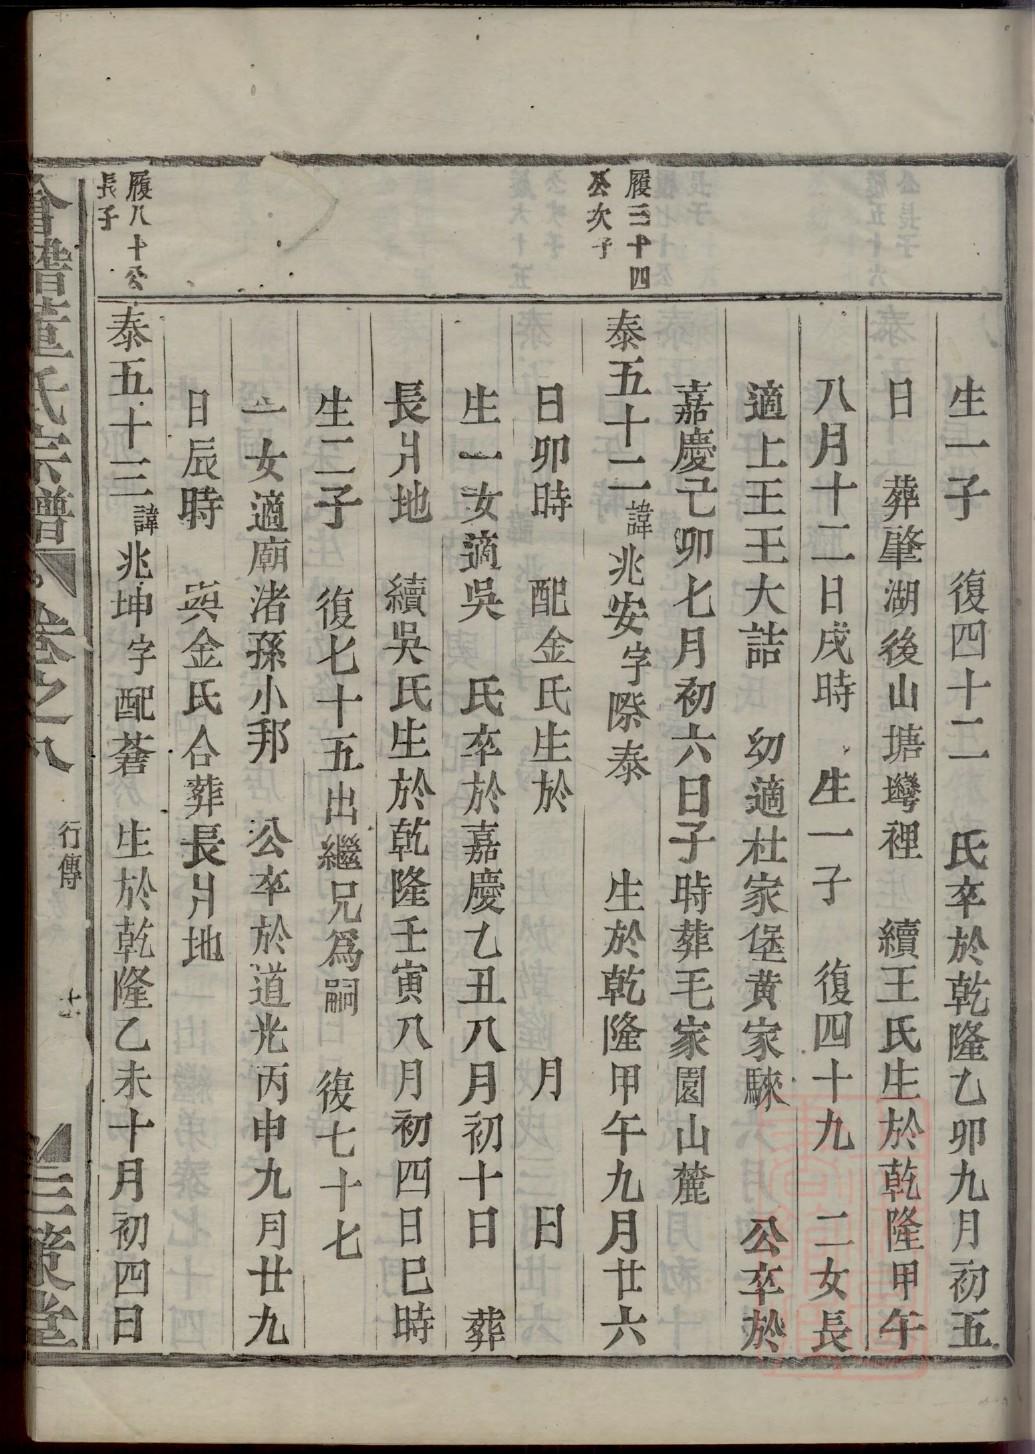 生一子　復四十二　氏卒於乾隆乙卯九月初五
日　葬肇湖後山塘灣裡　續王氏生於乾隆甲午
八月十二日戌時　生一子　復四十九　二女長
適上王王大誥　幼適杜家堡黄家騋　公卒於
嘉慶己卯七月初六日子時葬毛家園山麓
履三十四
公次子
泰五十二諱兆安字際泰　生於乾隆甲午九月廿六
日卯時　配金氏生於　月　日
生一女適吳　氏卒於嘉慶乙丑八月初十日　葬
長爿地　續吳氏生於乾隆壬寅八月初四日巳時
生二子　復七十五出繼兄爲嗣　復七十七
一女適廟渚孫小邦　公卒於道光丙申九月廿九
日辰時　與金氏合葬長爿地
履八十公
長子
泰五十三諱兆坤字配蒼　生於乾隆乙未十月初四日
會稽董氏宗譜　卷之八　行傳　十一　三策堂